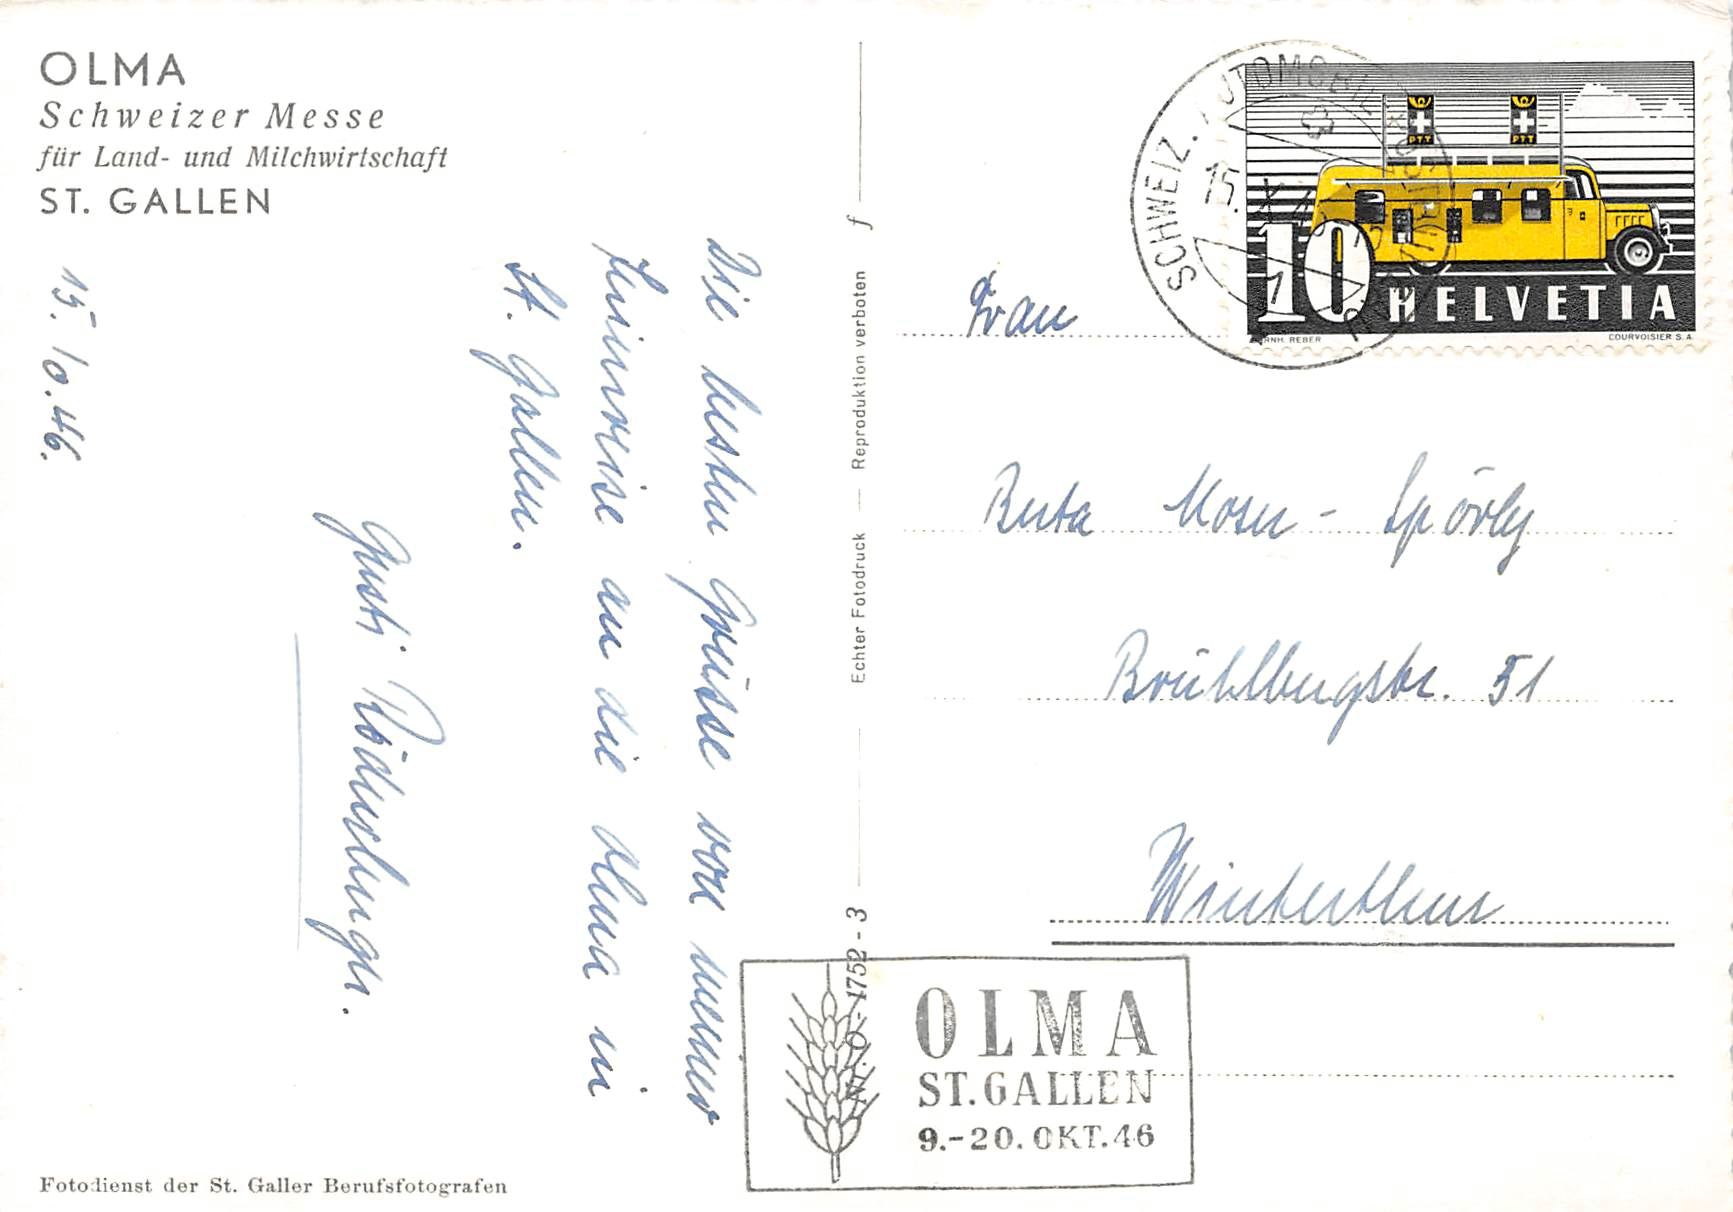 OLMA
Schweizer Messe
für Land- und Milchwirtschaft
ST. GALLEN
15. 10. 46.
Die besten Grüsse von meiner
Heimreise an die Olma in
St. Gallen.
Gusti
Fotodienst der St. Galler Berufsfotografen
Echter Fotodruck — Reproduktion verboten
f
Nr. O - 1752 - 3
SCHWEIZ. AUTOMOBIL
15. X
10 HELVETIA
PTT
PTT
COURVOISIER S.A.
Frau
Berta Moser - Spörly
Brühlbergstr. 51
Winterthur
OLMA
ST. GALLEN
9.-20. OKT. 46